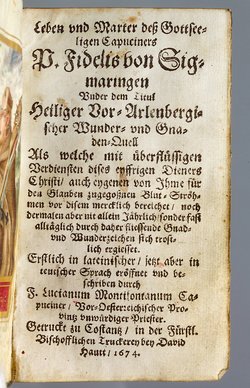 Leben vnd Marter deß Gottsee-
ligen Capuciners
P. Fidelis von Sig-
maringen
Vnder dem Titul
Heiliger Vor-Arlenbergi-
scher Wunder- vnd Gna-
den-Quell
Als welche mit überflüssigen
Verdiensten dises eyffrigen Dieners
Christi / auch eygenen von Ihme für
den Glauben zugegoßnen Blut-Ströh-
men vor disem mercklich bereichet / noch
dermalen aber nit allein Jährlich / sonder fast
alltäglich durch daher fliessende Gnad-
vnd Wunderzeichen sich trost-
lich ergiesset.
Erstlich in lateinischer / jetz aber in
teutscher Sprach eröffnet vnd be-
schriben durch
F. Lucianum Montifontanum Ca-
puciner / Vor-Oesterreichischer Pro-
vintz vnwürdiger Priester.
Getruckt zu Costantz / in der Fürstl.
Bischofflichen Truckerey bey David
Hautt / 1674.